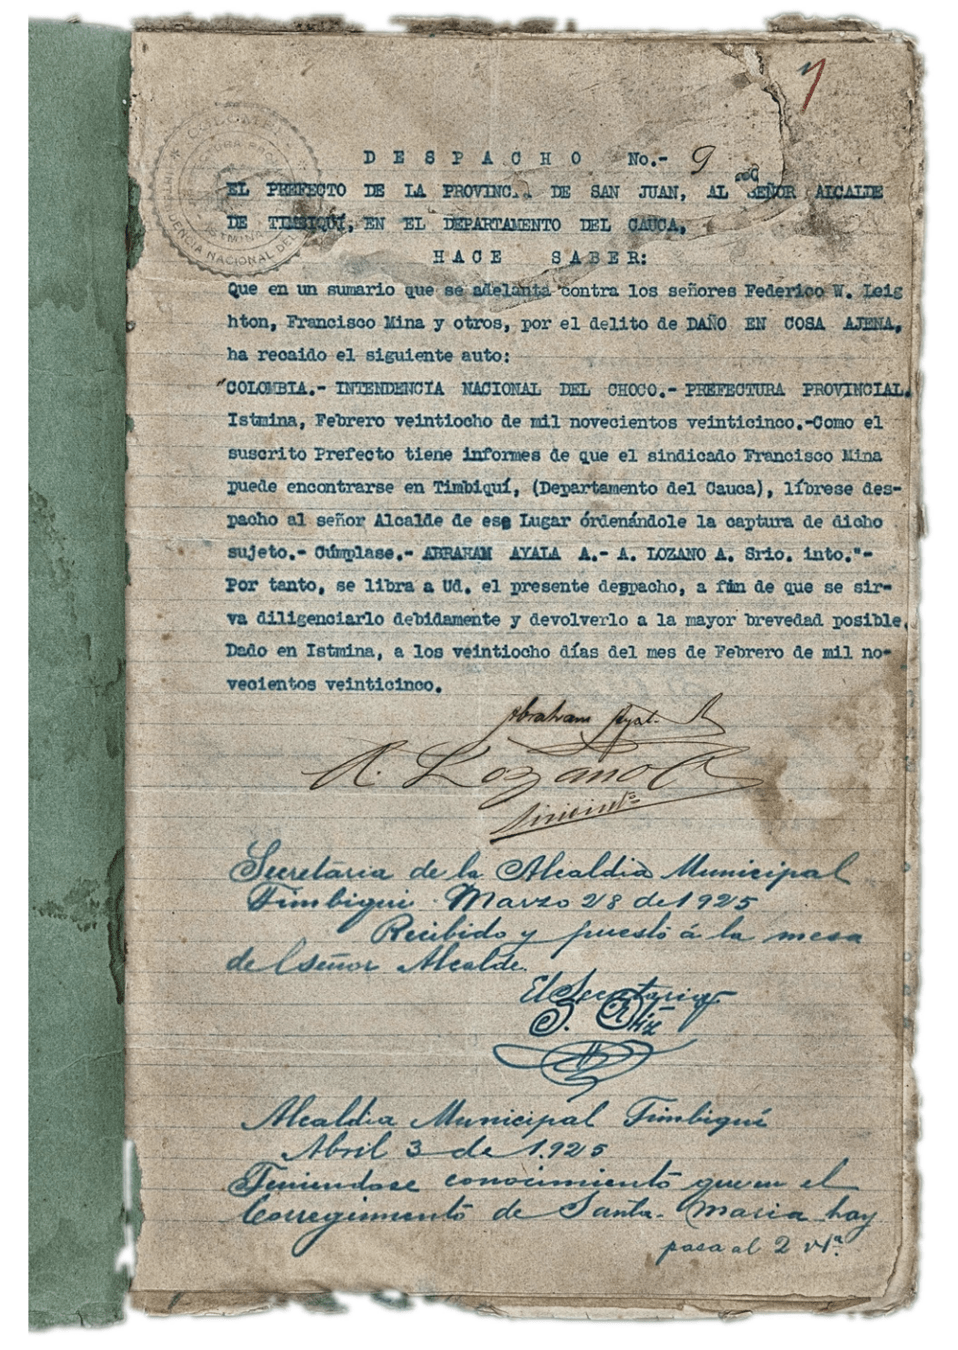 7
COLOMBIA
PREFECTURA PROVINCIAL
ISTMINA
INTENDENCIA NACIONAL DEL
DESPACHO No.- 9
EL PREFECTO DE LA PROVINCIA DE SAN JUAN, AL SEÑOR ALCALDE
DE TIMBIQUÍ, EN EL DEPARTAMENTO DEL CAUCA,
HACE SABER:
Que en un sumario que se adelanta contra los señores Federico W. Leig
hton, Francisco Mina y otros, por el delito de DAÑO EN COSA AJENA,
ha recaido el siguiente auto:
"COLOMBIA.- INTENDENCIA NACIONAL DEL CHOCO.- PREFECTURA PROVINCIAL.
Istmina, Febrero veintiocho de mil novecientos veinticinco.-Como el
suscrito Prefecto tiene informes de que el sindicado Francisco Mina
puede encontrarse en Timbiquí, (Departamento del Cauca), líbrese des-
pacho al señor Alcalde de ese Lugar órdenándole la captura de dicho
sujeto.- Cúmplase.- ABRAHAM AYALA A.- A. LOZANO A. Srio. into."-
Por tanto, se libra a Ud. el presente despacho, a fin de que se sir-
va diligenciarlo debidamente y devolverlo a la mayor brevedad posible.
Dado en Istmina, a los veintiocho días del mes de Febrero de mil no-
vecientos veinticinco.
Abraham Ayala A
A. Lozano A
Secretaria de la Alcaldia Municipal
Timbiqui Marzo 28 de 1925
Recibido y puesto á la mesa
del señor Alcalde.
El Secretario
Alcaldia Municipal Timbiquí
Abril 3 de 1.925
Teniendose conocimiento que en el
Corregimiento de Santa-Maria hay
pasa al 2